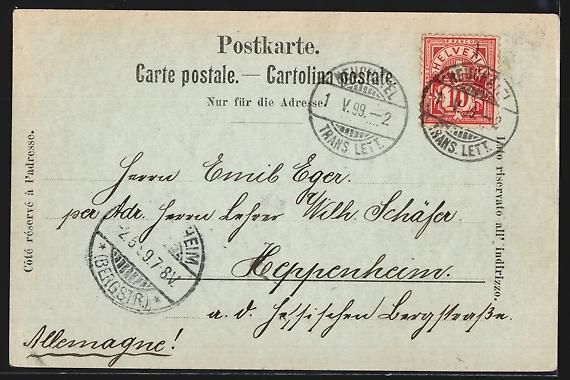 Postkarte.
Carte postale. — Cartolina postale.
Nur für die Adresse
FRANCO
HELVETIA
10
NEUCHATEL
1 V.99.—2
TRANS. LETT.
TRANS. LETT.
Côté réservé à l'adresse.
Lato riservato all' indirizzo.
Herrn Emil Eger.
per Adr. Herrn Lehrer Wilh. Schäfer
Heppenheim.
a. d. hessischen Bergstraße.
HEIM
2.5.99.7-8V.
* (BERGSTR.) *
Allemagne!